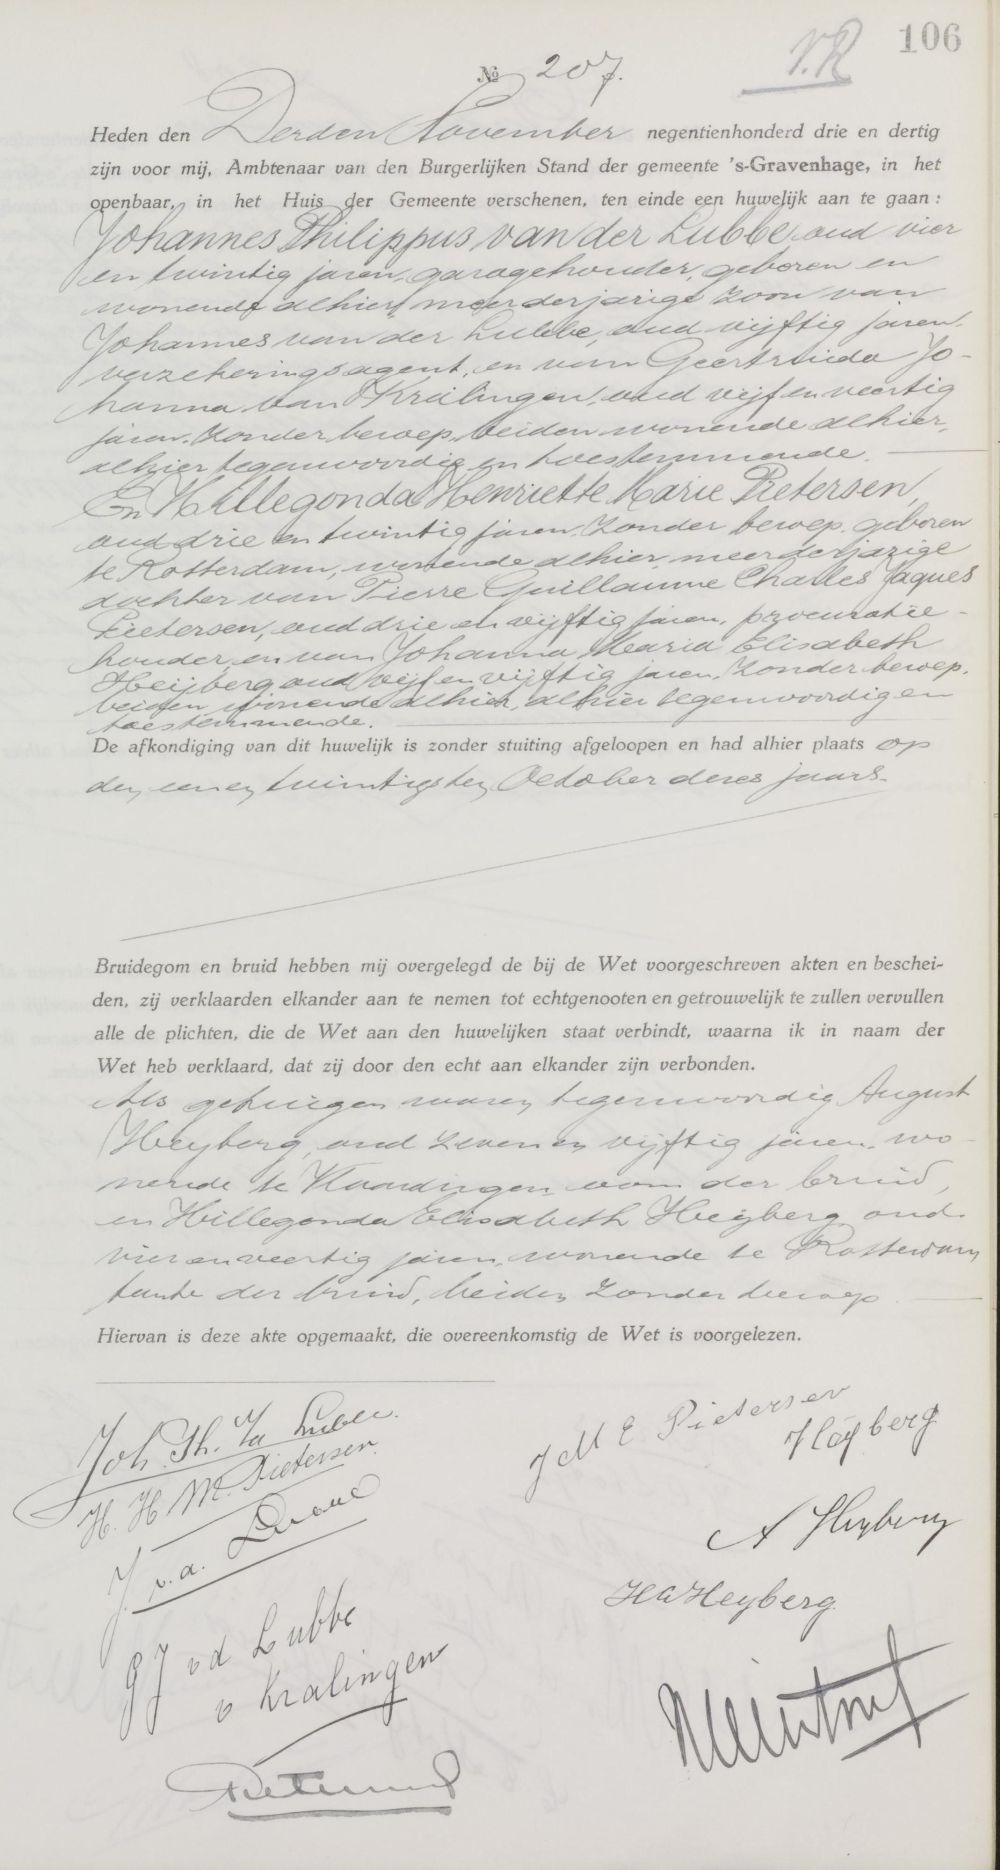 106
V.R
№ 207.
Heden den Derden November negentienhonderd drie en dertig
zijn voor mij, Ambtenaar van den Burgerlijken Stand der gemeente 's-Gravenhage, in het
openbaar, in het Huis der Gemeente verschenen, ten einde een huwelijk aan te gaan:
Johannes Philippus van der Lubbe, oud vier
en twintig jaren, garagehouder, geboren en
wonende alhier, meerderjarige zoon van
Johannes van der Lubbe, oud vijftig jaren,
verzekeringsagent, en van Geertruida Jo-
hanna van Kralingen, oud vijf en veertig
jaren, zonder beroep, beiden wonende alhier,
alhier tegenwoordig en toestemmende.
En Hillegonda Henriette Marie Pietersen,
oud drie en twintig jaren, zonder beroep, geboren
te Rotterdam, wonende alhier, meerderjarige
dochter van Pierre Guillaume Charles Jaques
Pietersen, oud drie en vijftig jaren, procuratie-
houder, en van Johanna Maria Elisabeth
Heijberg, oud vijf en vijftig jaren, zonder beroep,
beiden wonende alhier, alhier tegenwoordig en
toestemmende.
De afkondiging van dit huwelijk is zonder stuiting afgeloopen en had alhier plaats op
den een en twintigsten October dezes jaars.
Bruidegom en bruid hebben mij overgelegd de bij de Wet voorgeschreven akten en beschei-
den, zij verklaarden elkander aan te nemen tot echtgenooten en getrouwelijk te zullen vervullen
alle de plichten, die de Wet aan den huwelijken staat verbindt, waarna ik in naam der
Wet heb verklaard, dat zij door den echt aan elkander zijn verbonden.
Als getuigen waren tegenwoordig August
Heyberg, oud zeven en vijftig jaren, wo-
nende te Vlaardingen, oom der bruid,
en Hillegonda Elisabeth Heijberg, oud
vier en veertig jaren, wonende te Rotterdam,
tante der bruid, beiden zonder beroep.
Hiervan is deze akte opgemaakt, die overeenkomstig de Wet is voorgelezen.
Joh. Ph. Lubbe.
H. H. M. Pietersen.
J M E Pietersen
Heyberg
J. v. d. Lubbe
A Heyberg
G J v d Lubbe
v Kralingen
H Heyberg